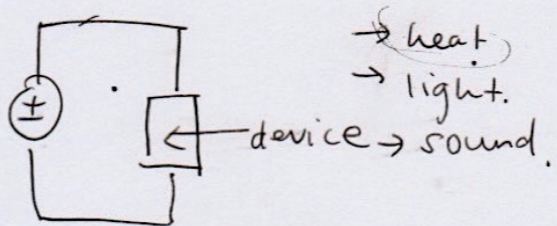 → heat.
→ light.
± device → sound.